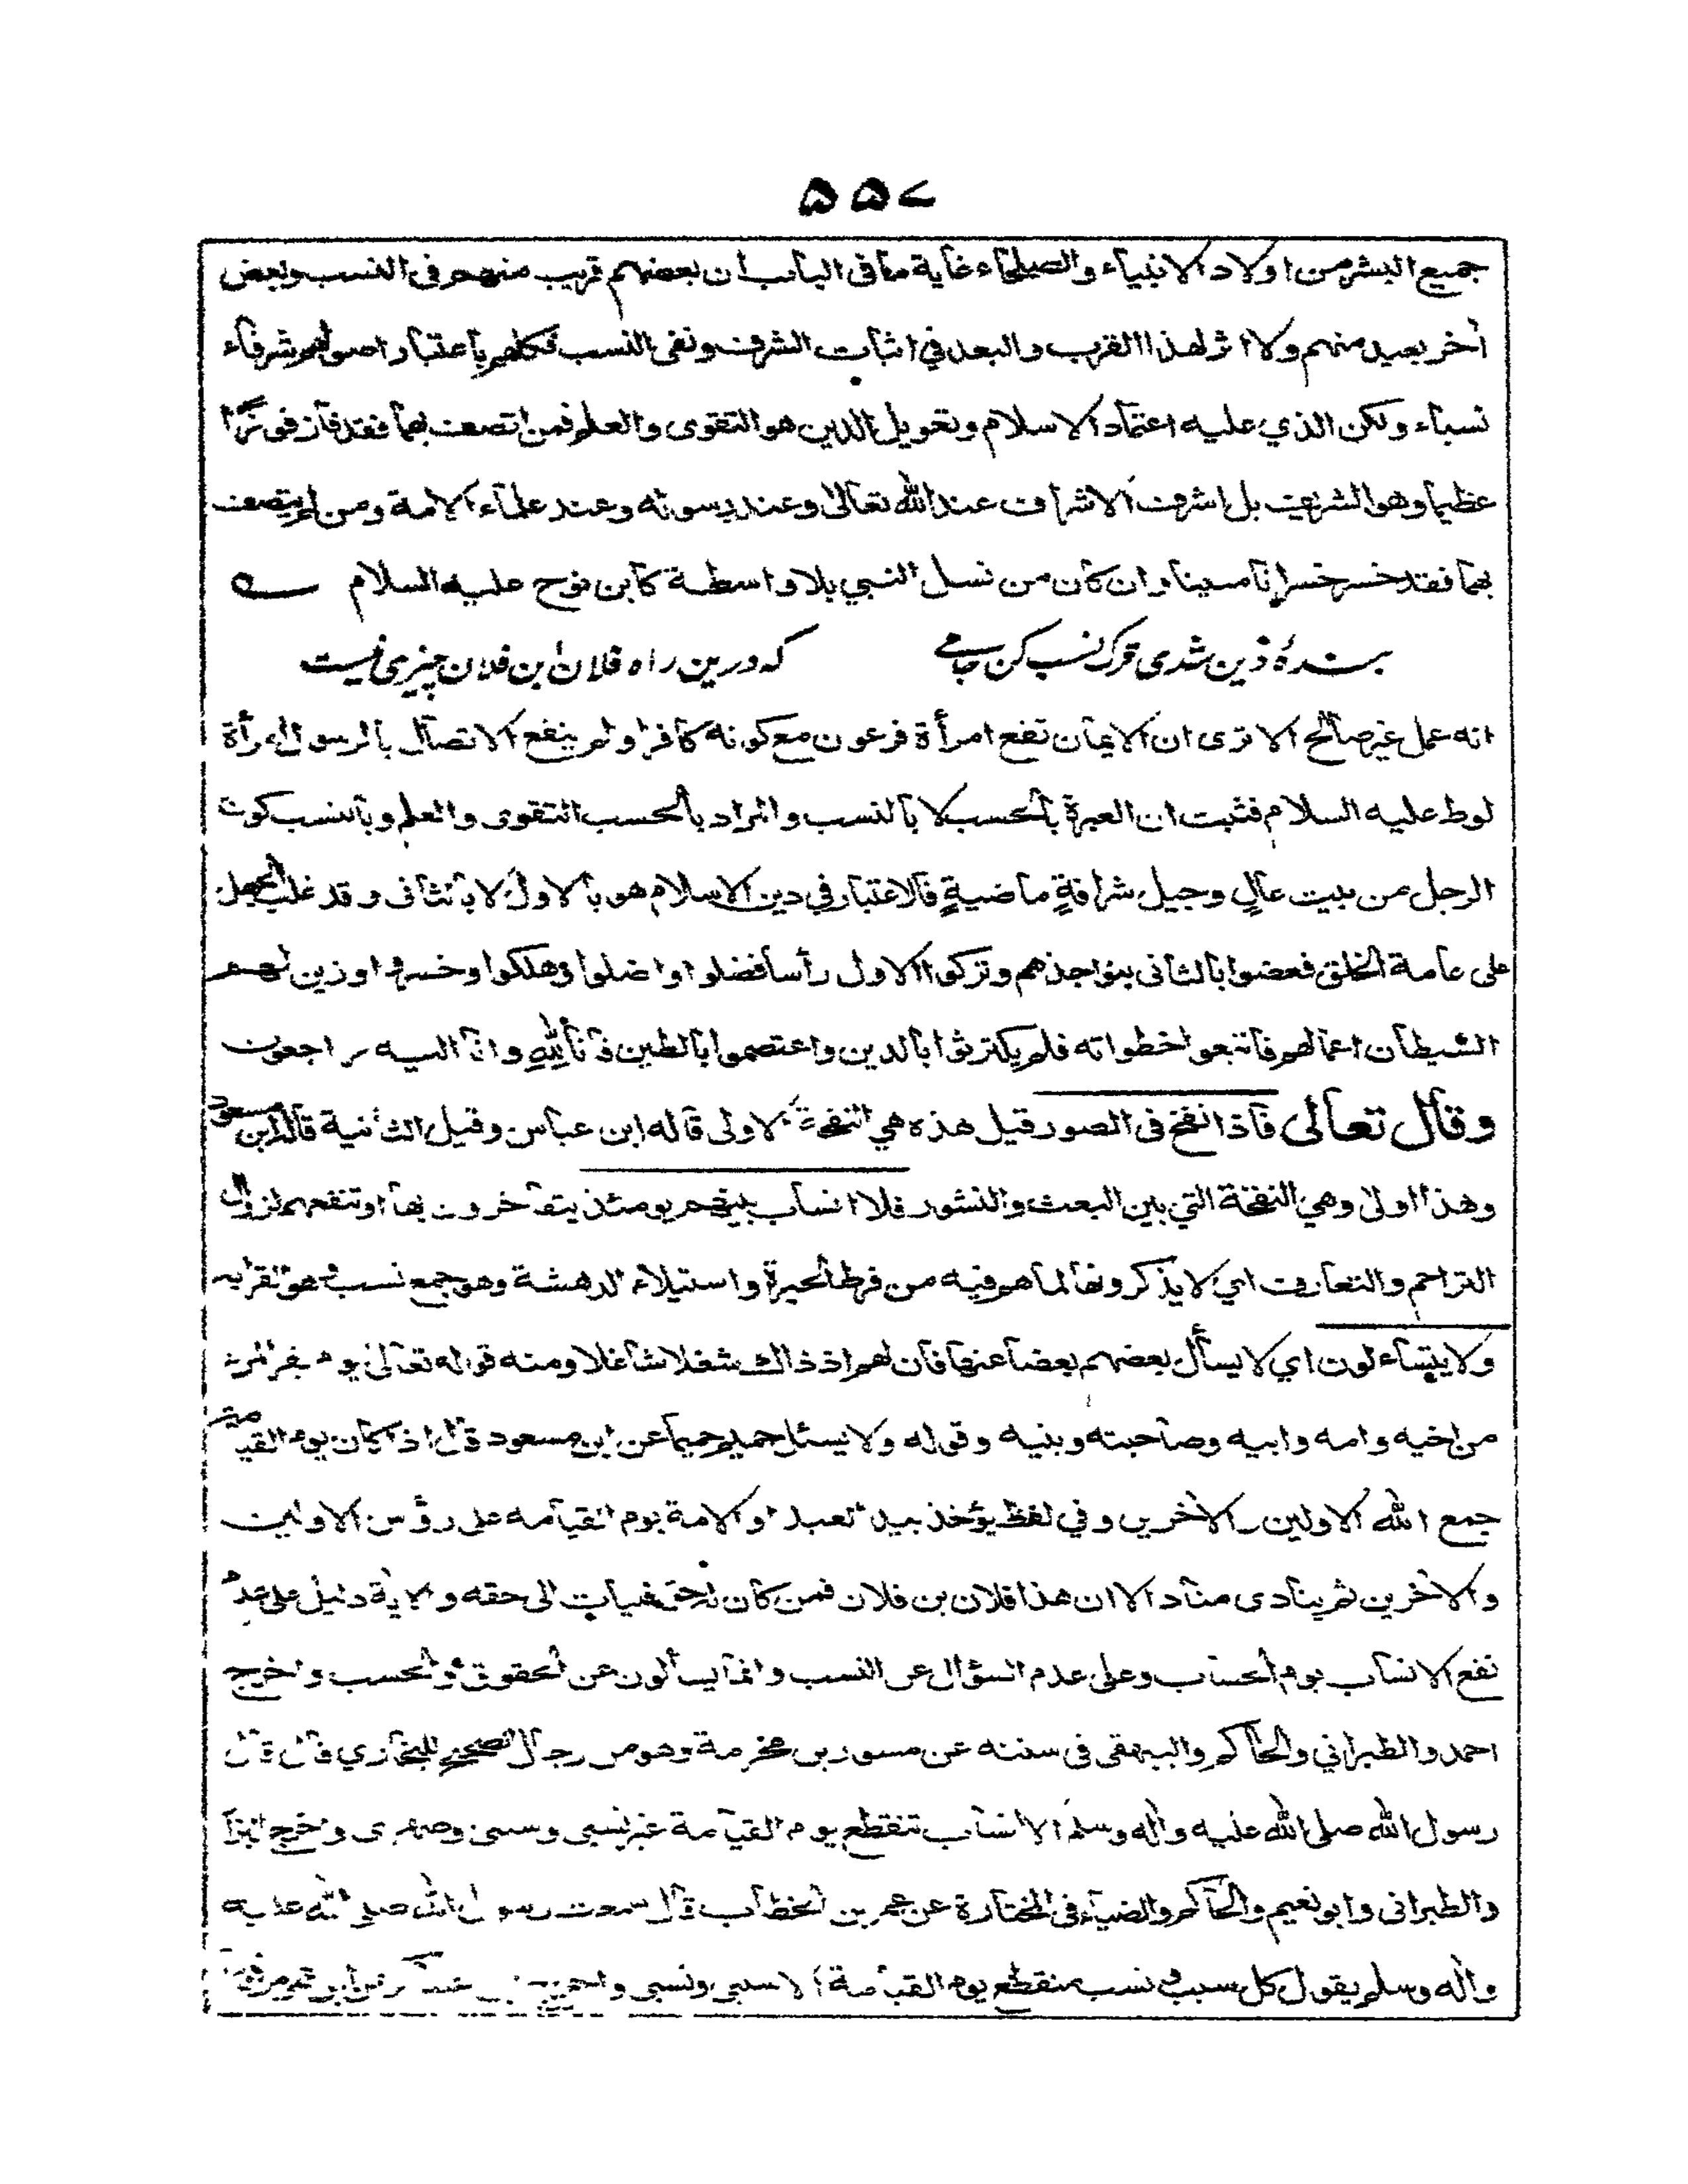 ۵۵۷
جميع البشر من اولاد الانبياء والصلحاء غاية ما فى الباب ان بعضهم قريب منهم فى النسب وبعض
أخر بعيد منهم ولا اثر لهذا القرب والبعد في اثبات الشرف ونفى النسب فكلهم باعتبار اصولهم شرفاء
نسباء ولكن الذي عليه اعتماد الاسلام وتحويل الدين هو التقوى والعلم فمن اتصف بهما فقد فاز فوزا
عظيما وهو الشريف بل اشرف الاشراف عند الله تعالى وعند رسوله وعند علماء الامة ومن لم يتصف
بهما فقد خسر خسرانا مبينا وان كان من نسل النبي بلا واسطة كابن نوح عليه السلام
بندۂ دين شدى ترك نسب كن جامے كه درين راه فلان ابن فلان چيزى نيست
انه عمل غير صالح الا ترى ان الايمان نفع امرأة فرعون مع كونه كافرا ولم ينفع الاتصال بالرسول امرأة
لوط عليه السلام فثبت ان العبرة بالحسب لا بالنسب والمراد بالحسب التقوى والعلم وبالنسب كون
الرجل من بيت عال وجيل شرافةٍ ماضيةٍ فالاعتبار في دين الاسلام هو بالاول لا بالثانى وقد غلب الجهل
على عامة الخلق فعضوا بالثانى بنواجذهم وتركوا الاول رأسا فضلوا واضلوا وهلكوا وخسروا وزين لهم
الشيطان اعمالهم فاتبعوا خطواته فلم يكترثوا بالدين واعتصموا بالطين فانا لله وانا اليه راجعون
وقال تعالى فاذا نفخ فى الصور قيل هذه هي النفخة الاولى قاله ابن عباس وقيل الثانية قاله ابن مسعود
وهذا اولى وهي النفخة التي بين البعث والنشور فلا انساب بينهم يومئذ يتفاخرون بها او تنفعهم لزوال
التراحم والتعارف اي لا يذكرونها لما هم فيه من فرط الحيرة واستيلاء الدهشة وهو جمع نسب وهو القرابه
ولا يتساءلون اي لا يسأل بعضهم بعضا عنها فان لهم اذ ذالك شغلا شاغلا ومنه قوله تعالى يوم يفر المرء
من اخيه وامه وابيه وصاحبته وبنيه وقوله ولا يسئل حميم حميما عن ابن مسعود قال اذا كان يوم القيامة
جمع الله الاولين والأخرين وفي لفظ يؤخذ بيد العبد او الامة يوم القيامه على رؤس الاولين
والأخرين ثم ينادى مناد الا ان هذا فلان بن فلان فمن كان له حق فليات الى حقه والاية دليل على عدم
نفع الانساب يوم الحساب وعلى عدم السؤال عن النسب وانما يسألون عن الحقوق والحسب واخرج
احمد والطبراني والحاكم والبيهقى فى سننه عن مسور بن مخرمة وهو من رجال الصحيح للبخاري قال قال
رسول الله صلى الله عليه وأله وسلم الانساب تنقطع يوم القيامة غير نسبى وسببى وصهرى واخرج البزار
والطبرانى وابو نعيم والحاكم والضياء فى المختارة عن عمر بن الخطاب قال سمعت رسول الله صلى الله عليه
وأله وسلم يقول كل سبب ونسب منقطع يوم القيامة الا سببى ونسبى